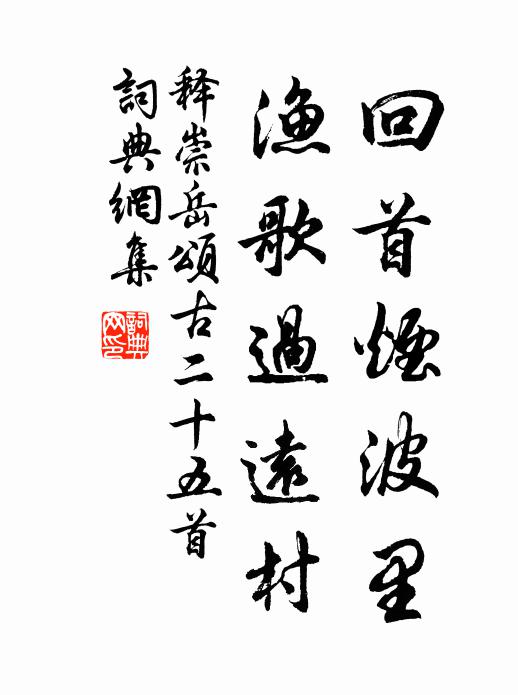 回首煙波里
漁歌過遠村
释崇岳頌古二十五首
詞典網集
詞典网印